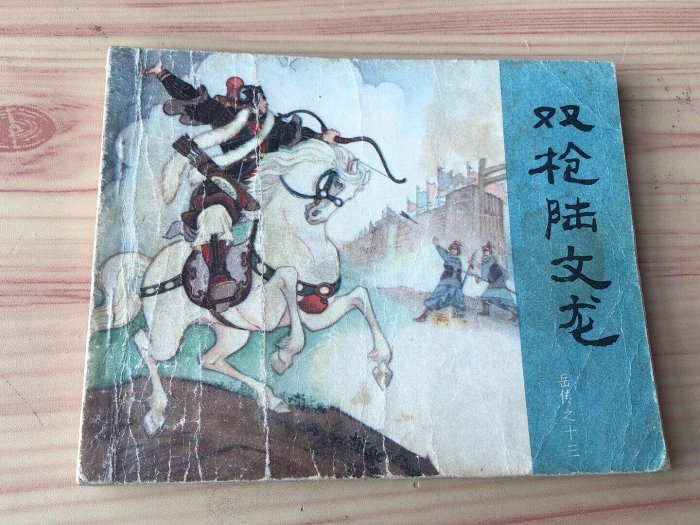 双枪陆文龙
岳传之十三